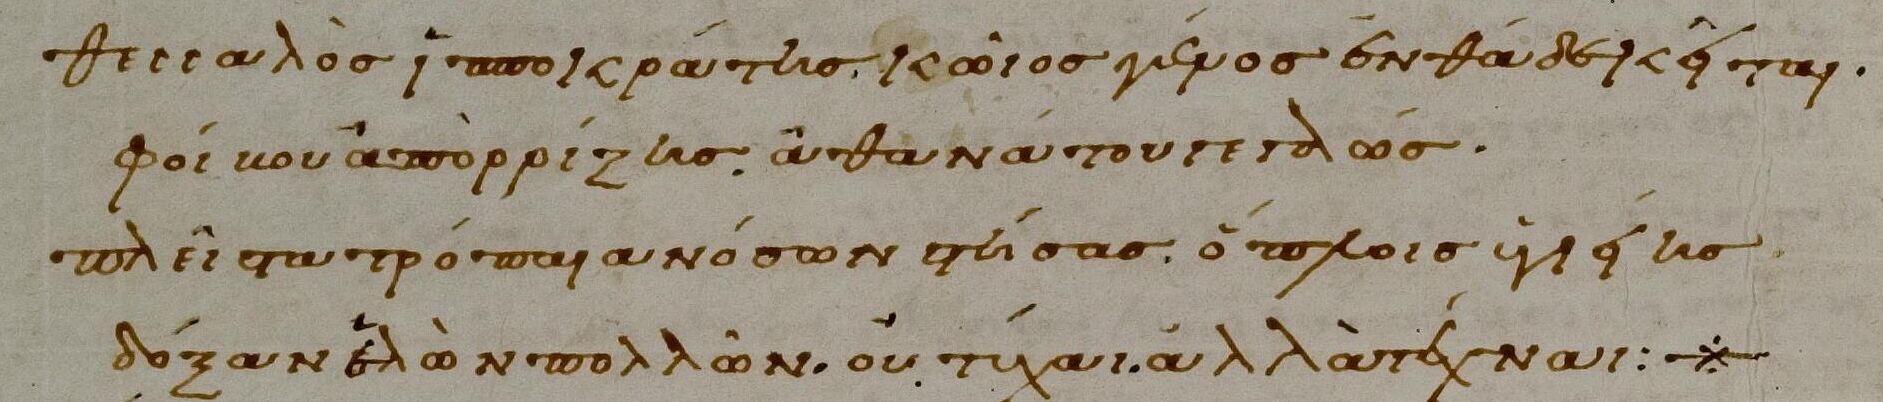 θεσσαλὸς ἱπποκράτης. κῶιος γένος ἐνθάδε κεῖται.
φοίβου ἀπὸ ῥίζης. ἀθανάτου γεγαώς.
πλεῖστα τρόπαια νόσων στήσας. ὅπλοις ὑγιείης
δόξαν ἑλὼν πολλῶν. οὐ τύχαι. ἀλλὰ τέχναι: